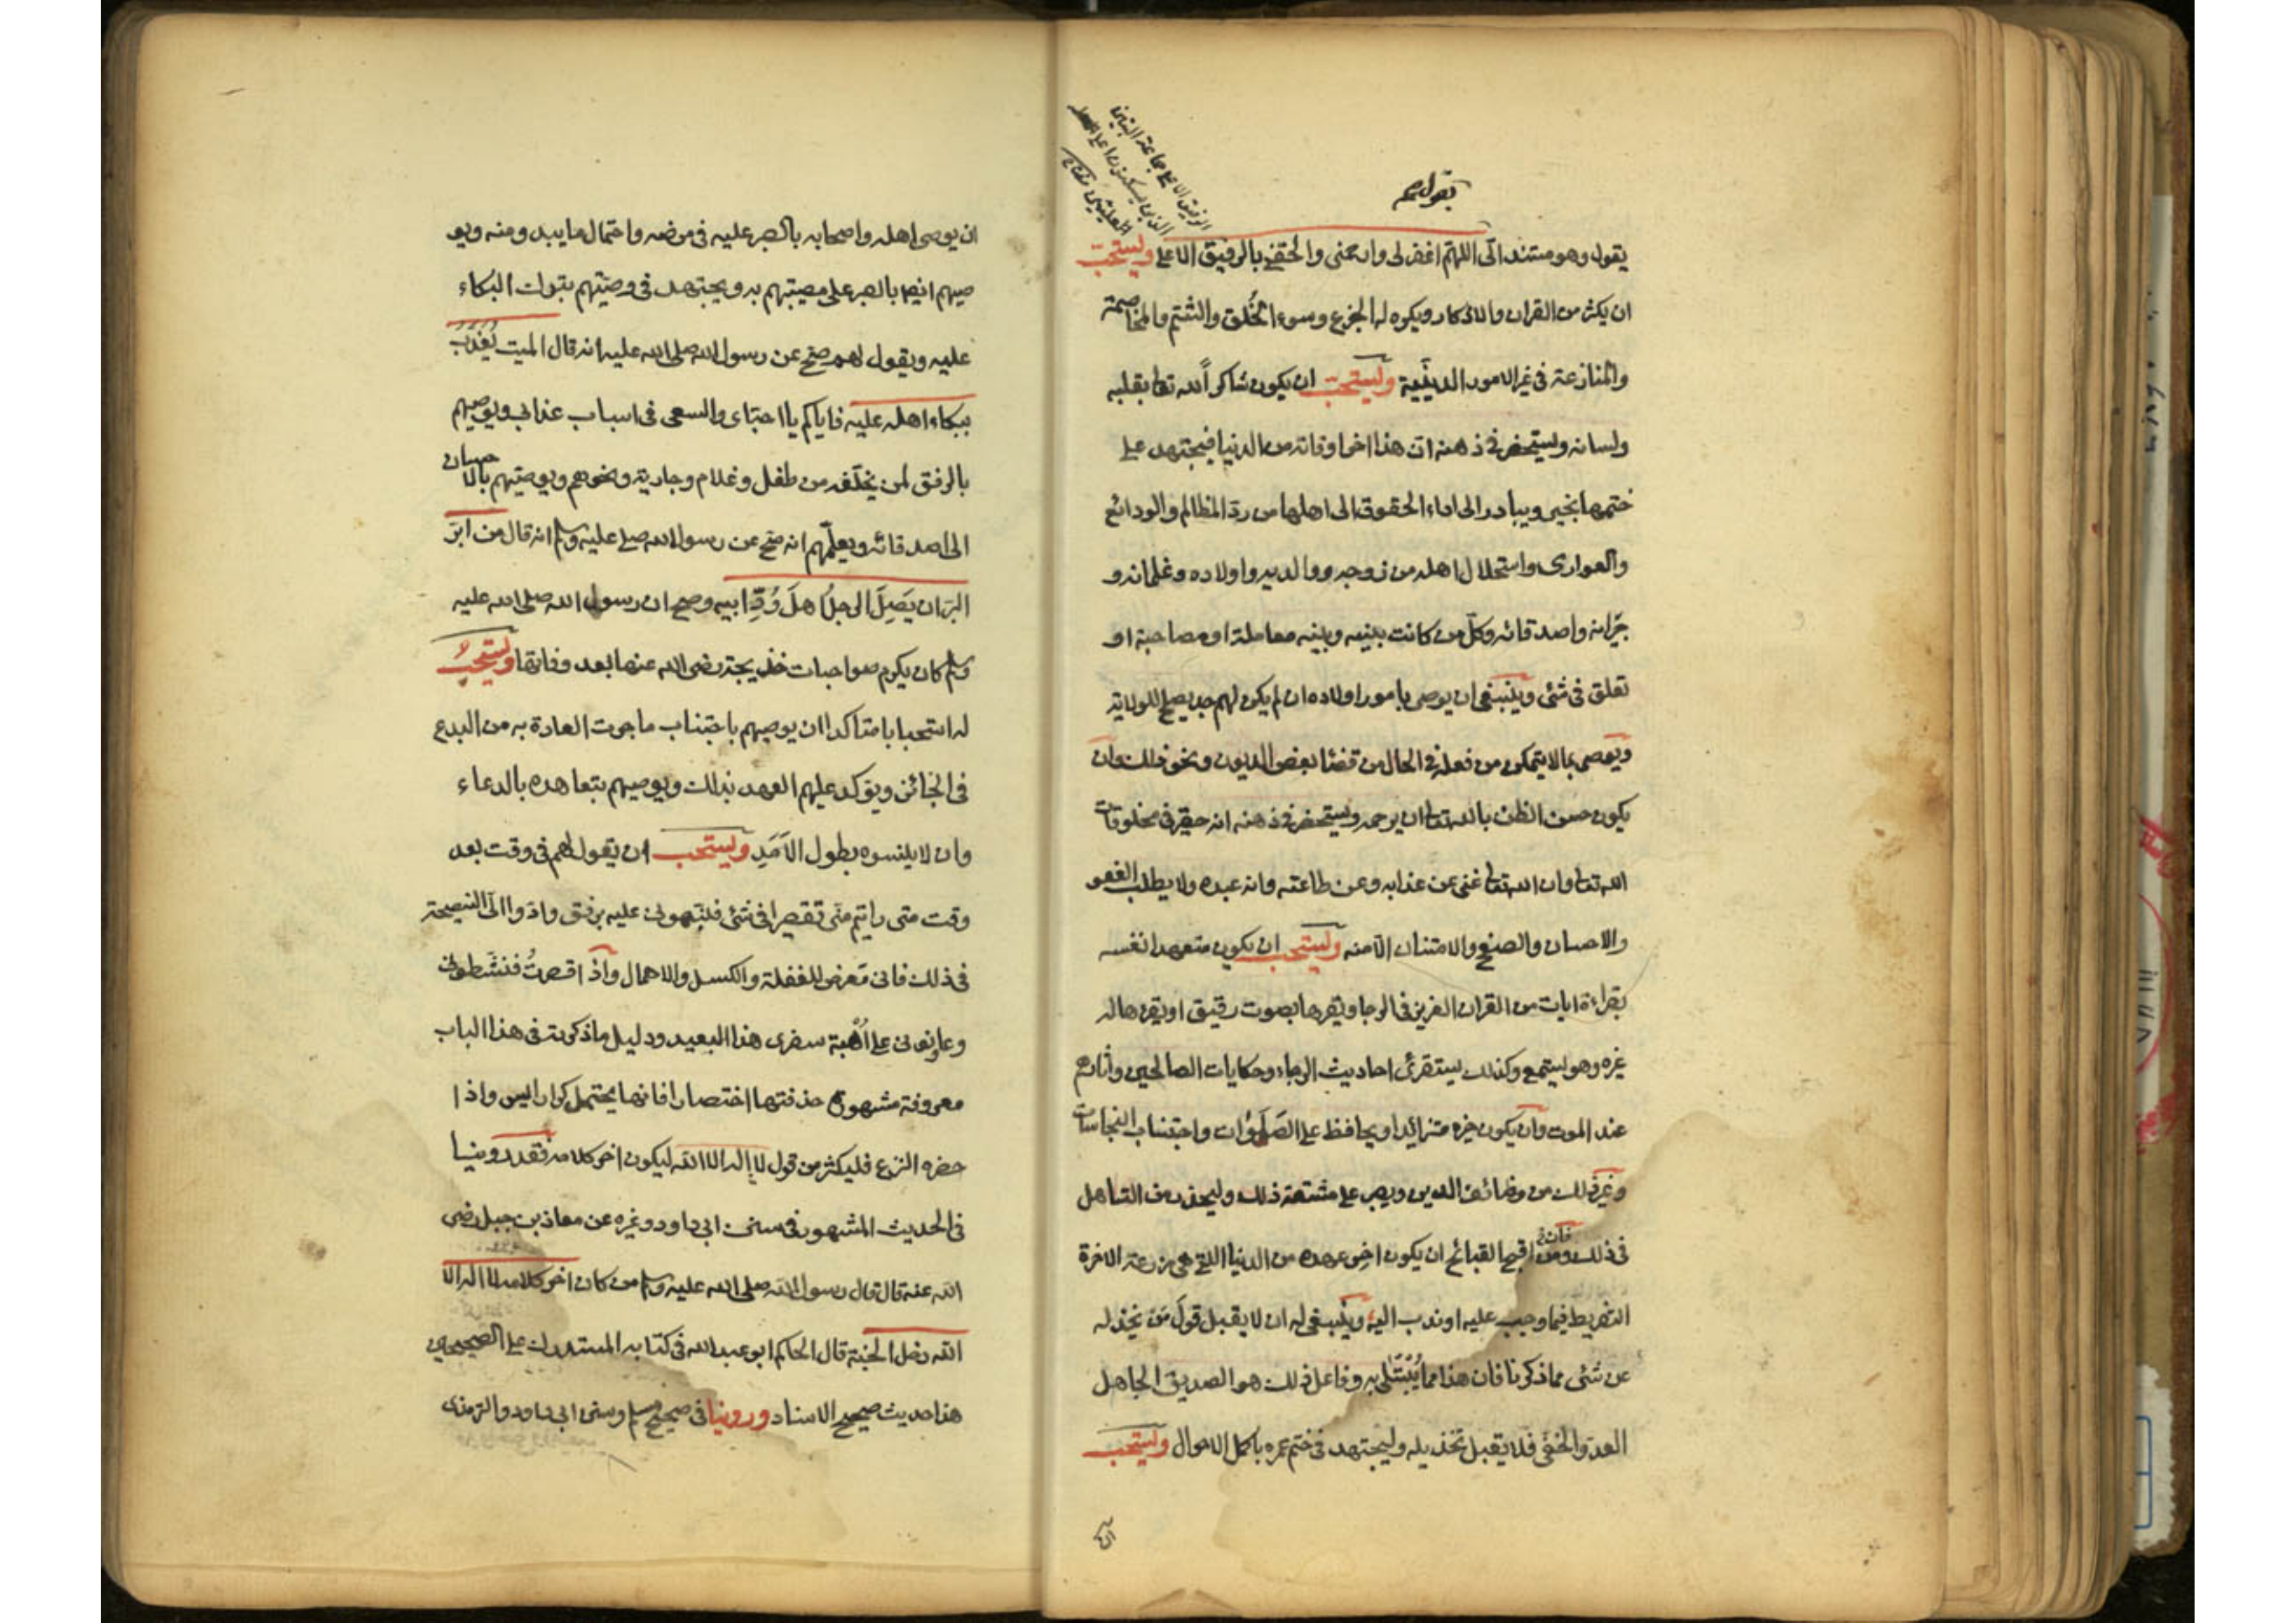 يقول صم
الرفيق الاعلى جماعة النبيين
الذين يسكنون اعلى
العليين
يقول وهو مستند الىّ اللهم اغفر لى وارحمنى والحقنى بالرفيق الاعلى ويستحب
ان يكثر من القران والاذكار ويكره له الجزع وسوء الخُلق والشتم والمخاصمة
والمنازعة فى غير الامور الدينيّة ويستحب ان يكون شاكراً لله تعا بقلبه
ولسانه ويستحضر فى ذهنه ان هذا اخر اوقاته من الدنيا فيجتهد على
ختمها بخير ويبادر الى اداء الحقوق الى اهلها من ردّ المظالم والودائع
والعوارى واستحلال اهله من زوجه ووالديه واولاده وغلمانه و
جيرانه واصدقائه وكلّ من كانت بينه وبينه معاملة او مصاحبة او
تعلق فى شئى وينبغى ان يوصى بامور اولاده ان لم يكن لهم جد يصلح للولاية
ويوصى بما لا يتمكن من فعله فى الحال من قضا بعض الديون ونحو ذلك وان
يكون حسن الظن بالله تعا ان يرحمه ويستحضر فى ذهنه انه حقير فى مخلوقات
الله تعا وان الله تعا غنى عن عذابه وعن طاعته وانه عبده ولا يطلب العفو
والاحسان والصفح والامتنان الّا منه ويستحب ان يكون متعهدا نفسه
بقراءة ايات من القران العزيز فى الرجا ويقرها بصوت رقيق او يقرها له
غيره وهو يستمع وكذلك يستقرئ احاديث الرجاء وحكايات الصالحين واثارهم
عند الموت وان يكون خيره متزائدا ويحافظ على الصلوات واجتناب النجاسات
وغير ذلك من وضائف الدين ويصبر على مشقة ذلك وليحذر من التساهل
فى ذلك فان من اقبح القبائح ان يكون اخر عهده من الدنيا اللتى هى مزرعة الاخرة
التفريط فيما وجب عليه او ندب اليه وينبغى له ان لا يقبل قولَ مَن يخذله
عن شئى مما ذكرنا فان هذا مما يُبْتَلى به وفاعل ذلك هو الصديق الجاهل
العدو الخفى فلا يقبل تخذيله وليجتهد فى ختم عمره باكمل الاحوال ويستحب
ان يوصى اهله واصحابه بالصبر عليه فى مرضه واحتمال ما يبدو منه ويو
صيهم ايضا بالصبر على مصيبتهم به ويجتهد فى وصيّتهم بترك البكاء
عليه ويقول لهم صحّ عن رسول الله صلى الله عليه انه قال الميت يُعَذَّب
ببكاء اهله عليه فاياكم يا احباى والسعى فى اسباب عذابى ويوصيهم
بالرفق لمن يخلّفه من طفل وغلام وجارية ونحوهم ويوصيهم بالاحسان
الى اصدقائه ويعلّمهم انه صحّ عن رسول الله صلى عليه وسلم انه قال من ابرّ
البرّ ان يَصِلَ الرجلُ اهلَ وُدِّ ابيه وصح ان رسول الله صلى الله عليه
وسلم كان يكرم صواحبات خديجة رضى الله عنها بعد وفاتها ويستحب
له استحبابا متاكدا ان يوصيهم باجتناب ما جرت العادة به من البدع
فى الجنائز ويؤكد عليهم العهد بذلك ويوصيهم بتعاهده بالدعاء
وان لا ينسوه بطول الاَمَدِ ويستحب ان يقول لهم فى وقت بعد
وقت متى رايتم منّى تقصيرا فى شئى فنبّهونى عليه برفق وادّوا الىّ النصيحة
فى ذلك فانى مَعرض للغفلة والكسل والاهمال واذ اقصرتُ فنشّطونى
وعاونونى على اُهْبة سفرى هذا البعيد ودليل ما ذكرته فى هذا الباب
معروفة مشهورة حذفتها اختصارا فانها يحتمل كراريس واذا
حضره النزع فليكثر من قول لا اله الا الله ليكون اخر كلامه فقد روينا
فى الحديث المشهور فى سنن ابى داود وغيره عن معاذ بن جبل رضى
الله عنه قال قال رسول الله صلى الله عليه وسلم من كان اخر كلامه لا اله الا
الله دخل الجنة قال الحاكم ابو عبد الله فى كتابه المستدرك على الصحيحين
هذا حديث صحيح الاسناد وروينا فى صحيح مسلم وسنن ابى داود والترمذى